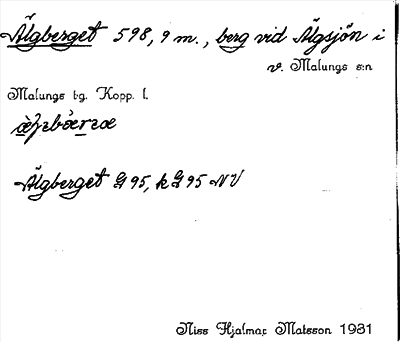 Älgberget 598,9 m., berg vid Älgsjön i
v. Malungs s:n
Malungs tg. Kopp. l.
Älgberget G 95, k G 95 NV
Niss Hjalmar Matsson 1931